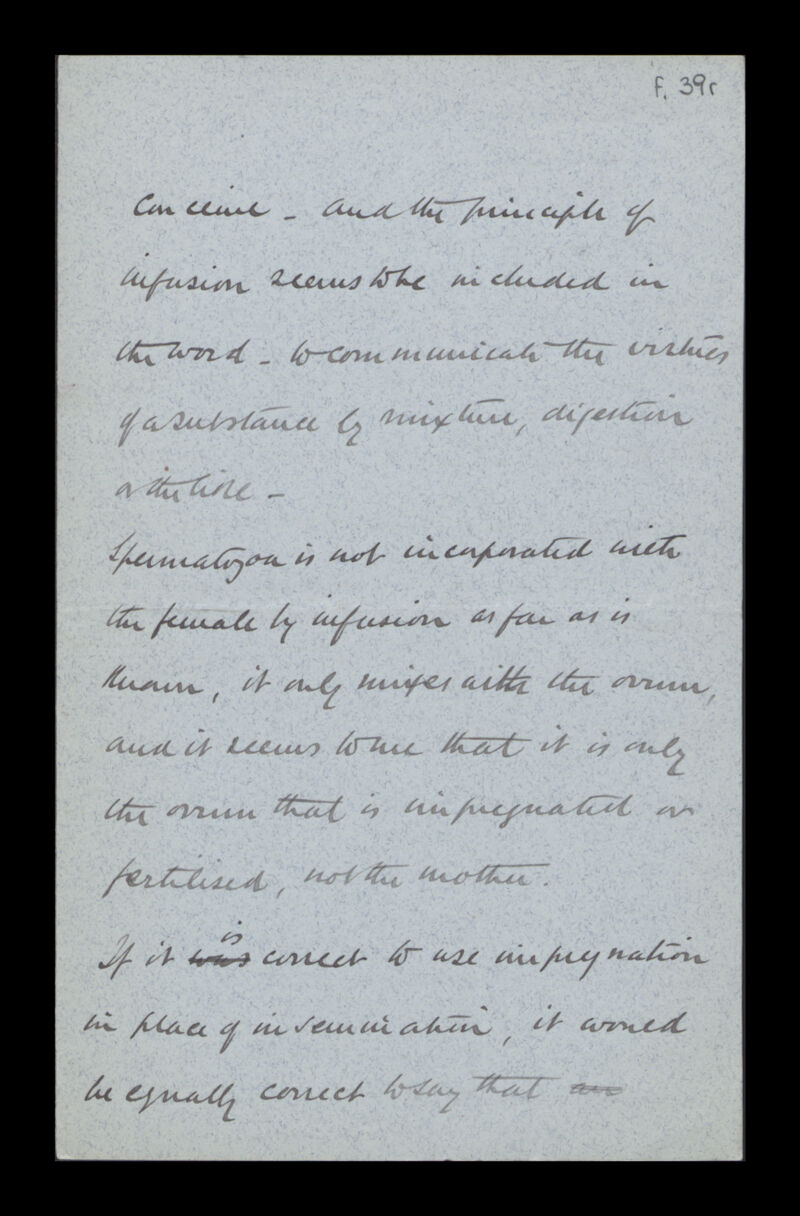 F. 39r
Conceive - And the principle of
infusion seems to be included in
the word - to communicate the virtues
of a substance by mixture, digestion
or the like -
Spermatozoa is not incorporated with
the female by infusion as far as is
known, it only mixes with the ovum,
and it seems to me that it is only
the ovum that is impregnated or
fertilised, not the mother.
is
If it was correct to use impregnation
in place of insemination, it would
be equally correct to say that an